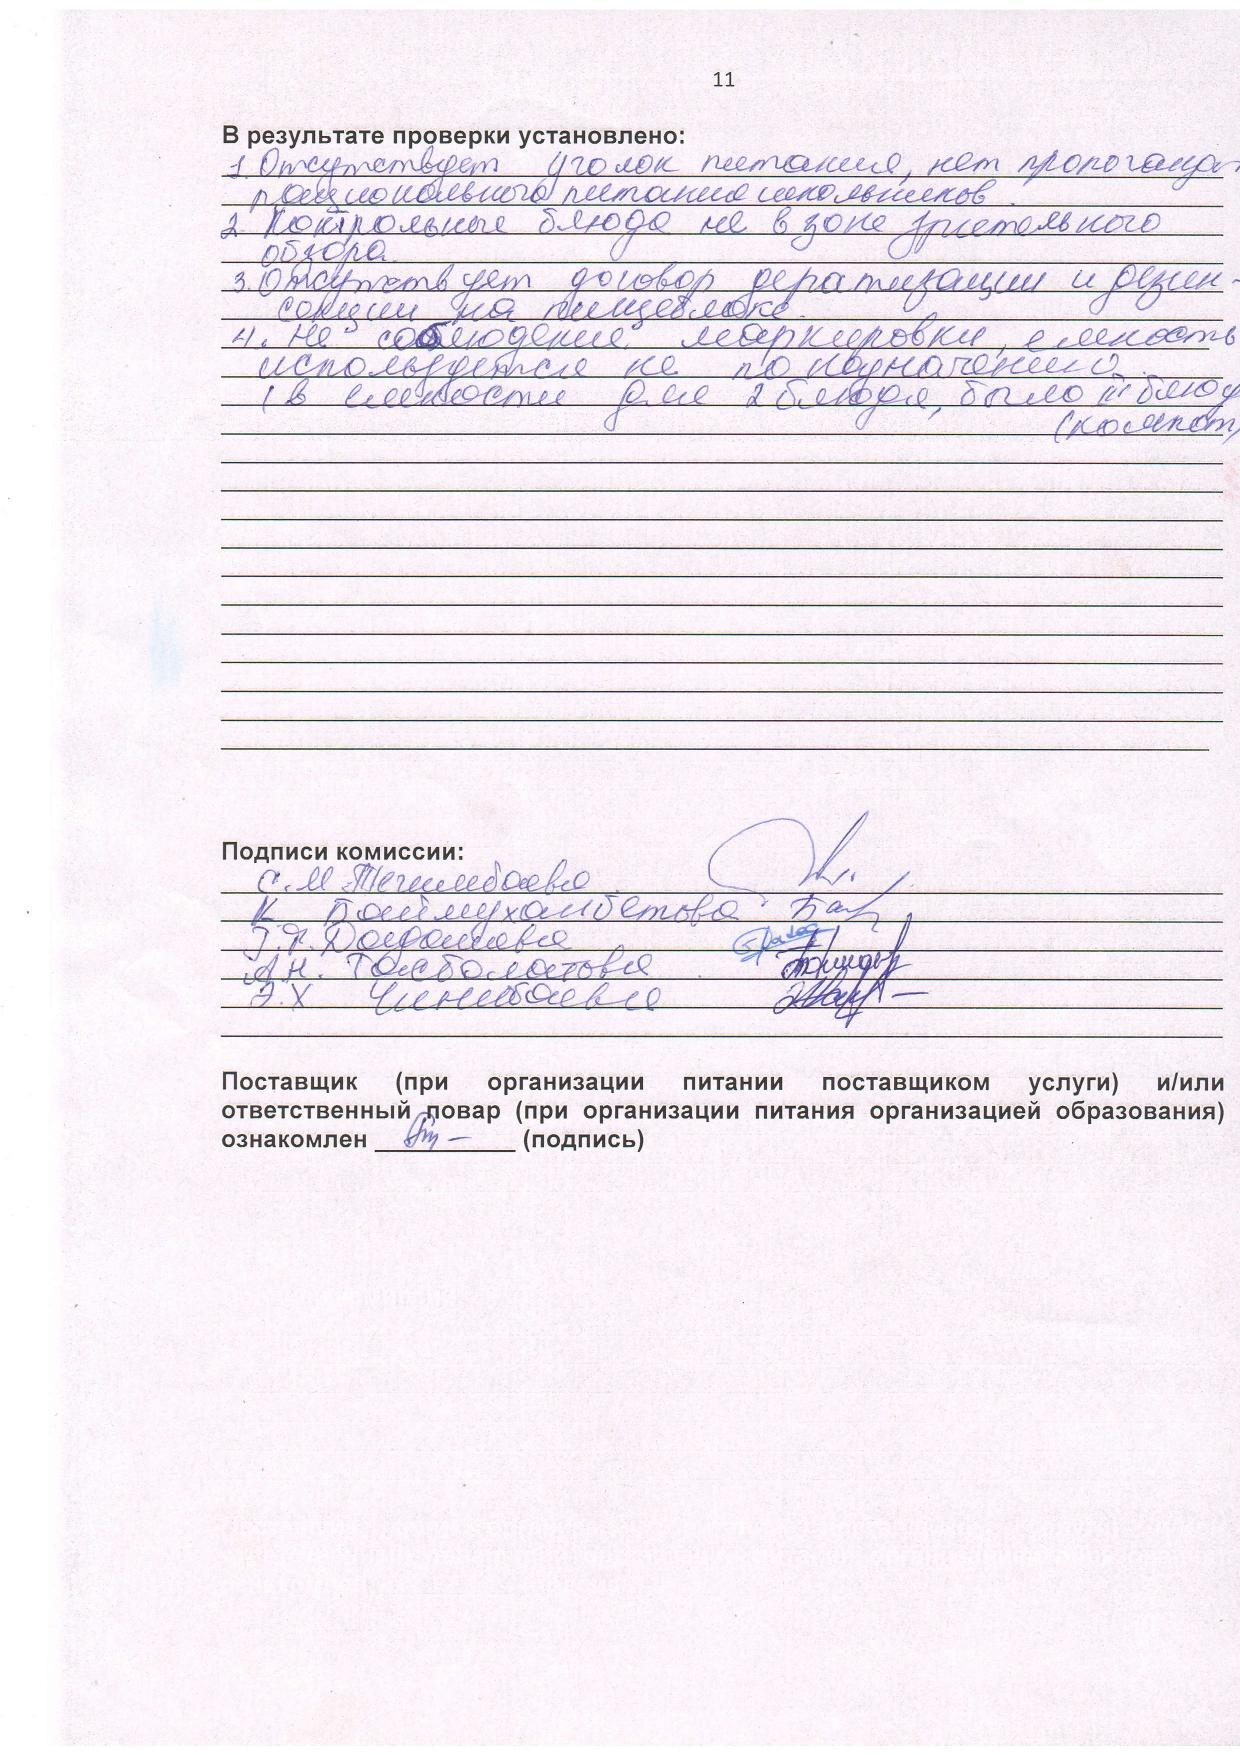 11
В результате проверки установлено:
1. Отсутствует уголок питания, нет пропоганда
рационального питание школьников.
2. Контрольные блюда не в зоне зрительного
обзора.
3. Отсутствует договор дератизации и дезин-
секции на пищеблоке.
4. Не соблюдение маркировки, емкость
используется не по назначению.
(в емкости для 2 блюда, было III блюд
(компот)
Подписи комиссии:
С.М. Тегимбаева
К Баймухамбетова
А.Н. Тасболатова
Э.Х Чинибаева
Поставщик (при организации питании поставщиком услуги) и/или
ответственный повар (при организации питания организацией образования)
ознакомлен __________ (подпись)